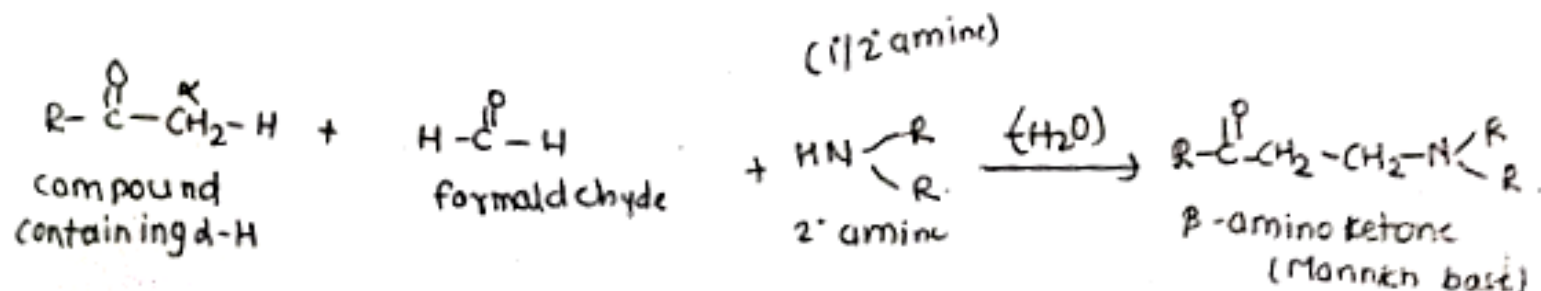 (1/2° amine)
R-C(=O)-CH₂-H + H-C(=O)-H + HN<R R. (-H₂O) → R-C(=O)-CH₂-CH₂-N<R R.
α
compound
containing α-H
formaldehyde
2° amine
β-amino ketone
(Mannich base)